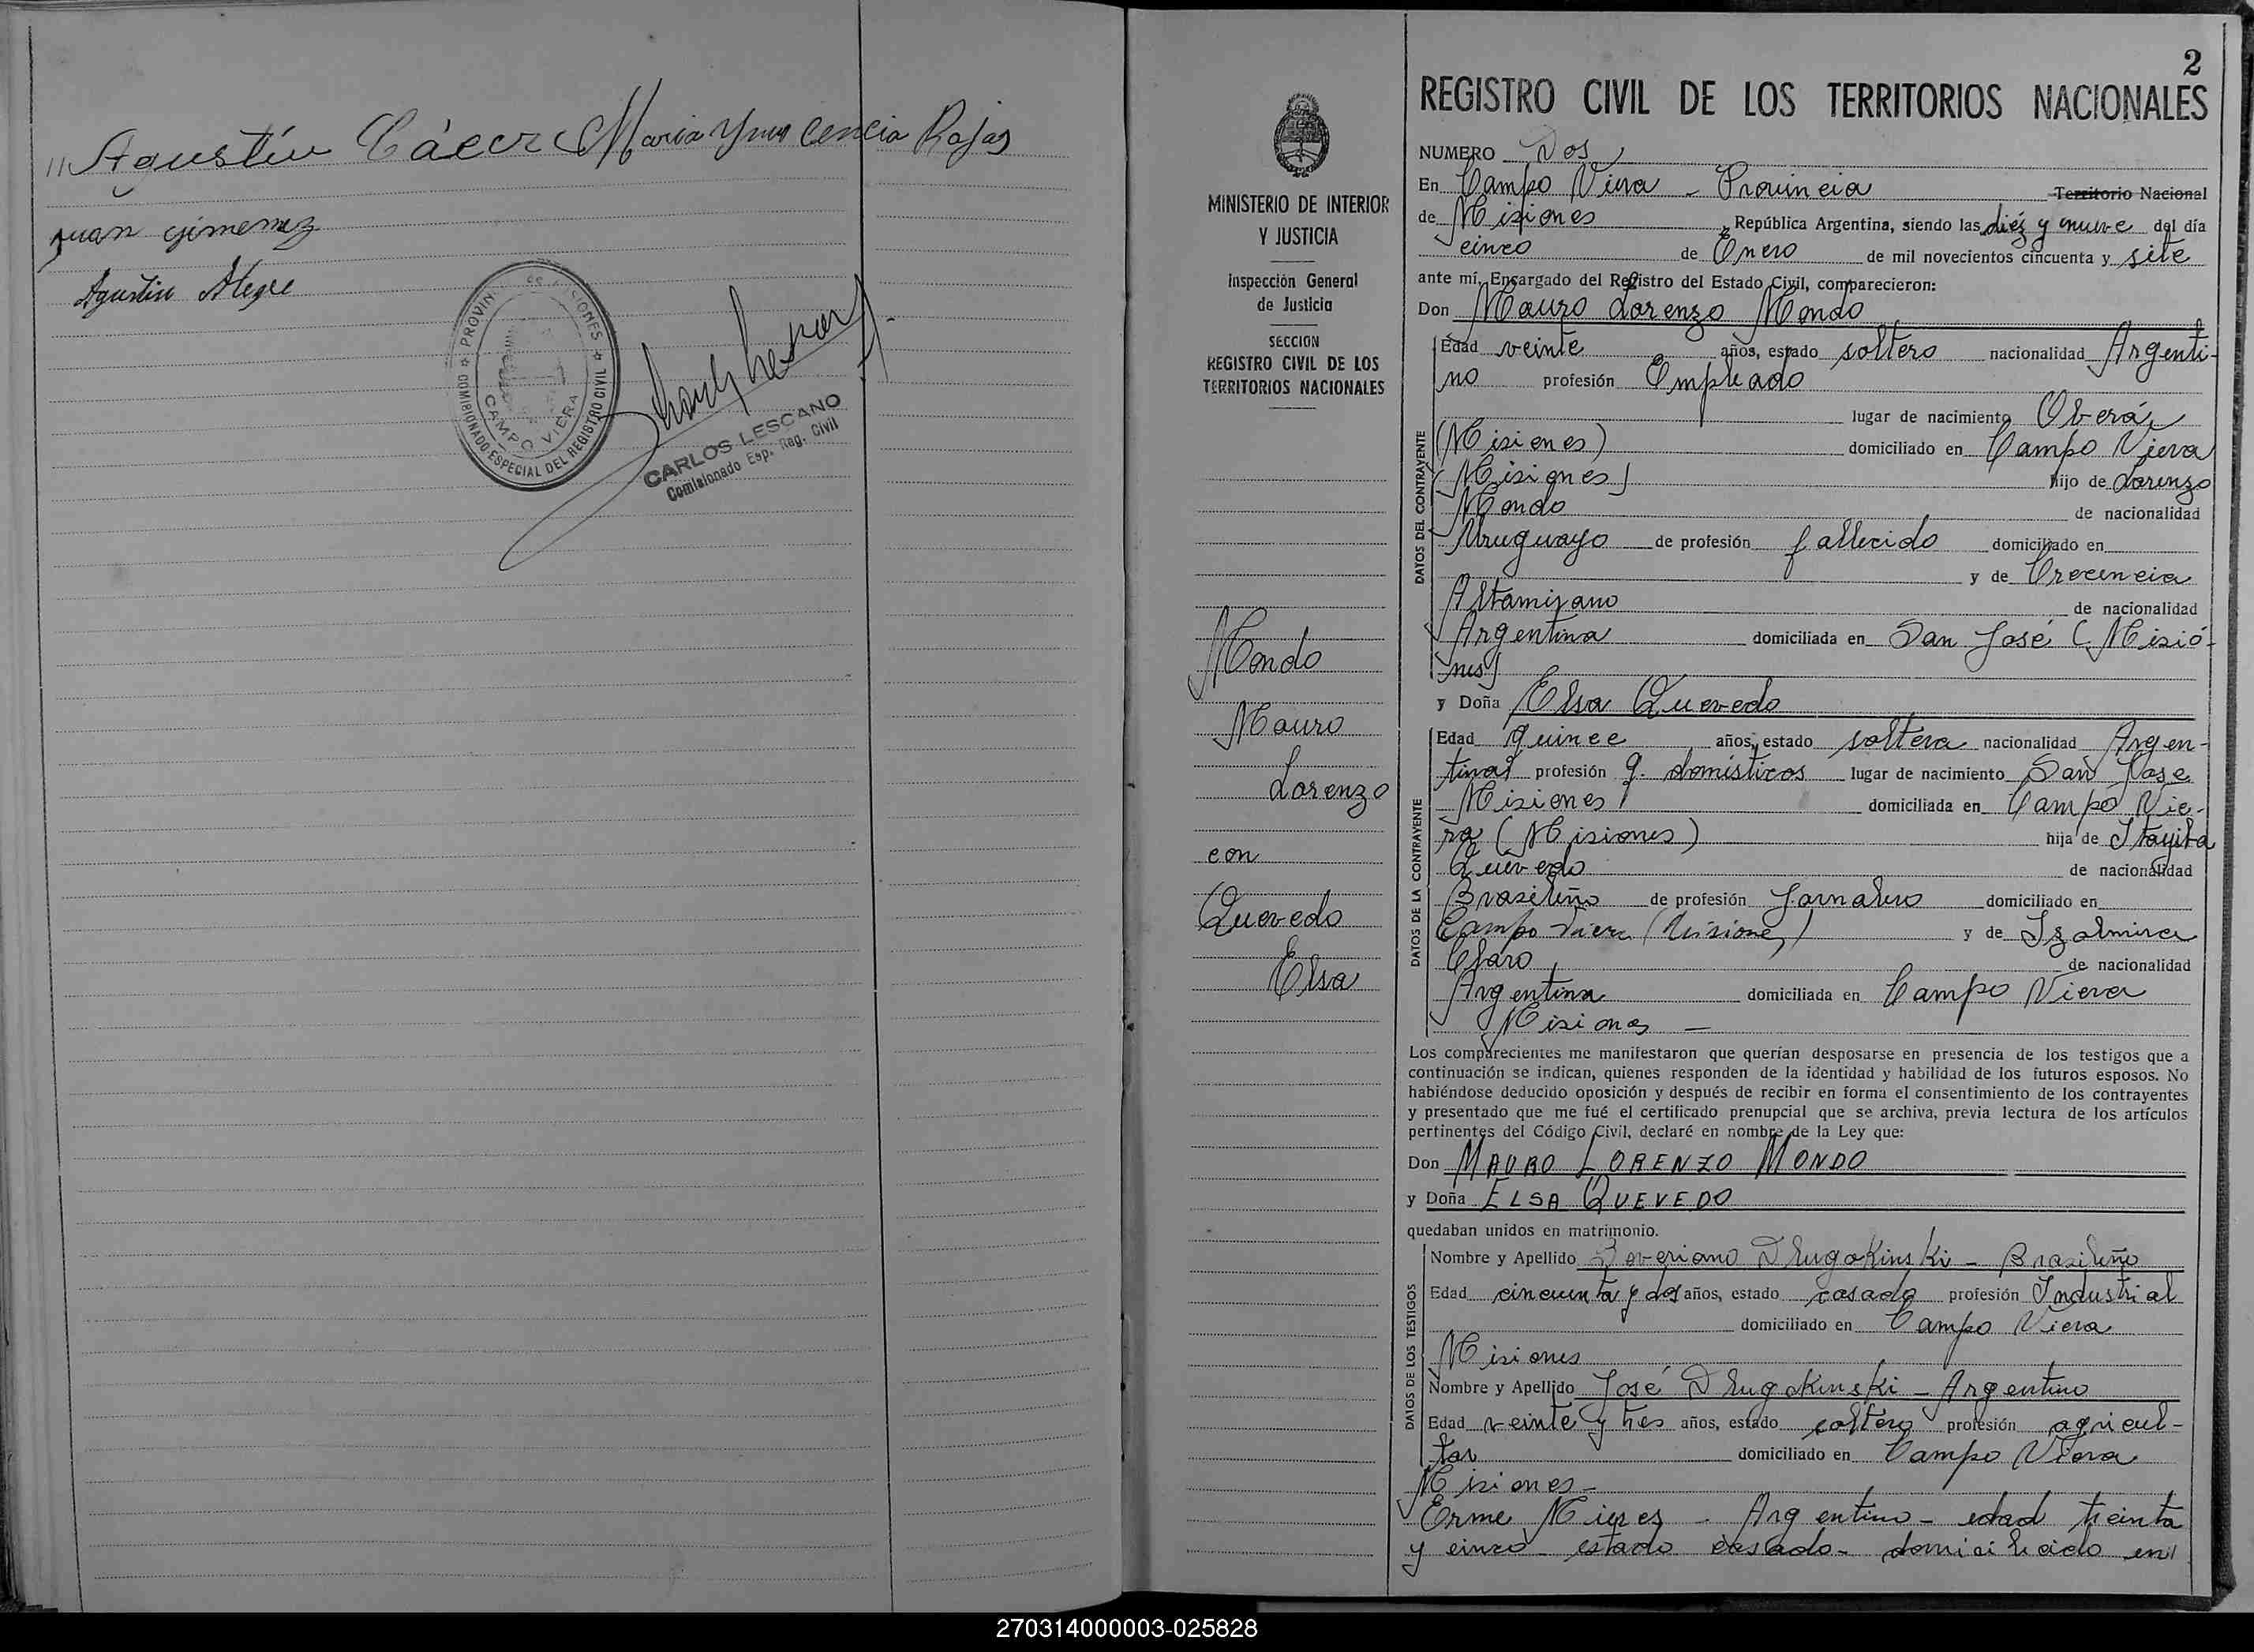 // Agustín Cácer Maria Ynocencia Rojas
Juan Gimenez
Agustin Alegre
PROVIN MISIONES
COMISIONADO ESPECIAL DEL REGISTRO CIVIL
CAMPO VIERA
CARLOS LESCANO
Comisionado Esp. Reg. Civil
MINISTERIO DE INTERIOR
Y JUSTICIA
Inspección General
de Justicia
SECCION
REGISTRO CIVIL DE LOS
TERRITORIOS NACIONALES
Mondo
Mauro
Lorenzo
con
Quevedo
Elsa
2
REGISTRO CIVIL DE LOS TERRITORIOS NACIONALES
NUMERO Dos
En Campo Viera - Provincia Territorio Nacional
de Misiones, República Argentina, siendo las diéz y nueve del día
cinco de Enero de mil novecientos cincuenta y siete
ante mí, Encargado del Registro del Estado Civil, comparecieron:
Don Mauro Lorenzo Mondo
DATOS DEL CONTRAYENTE
Edad veinte años, estado soltero nacionalidad Argenti-
no profesión Empleado
lugar de nacimiento Oberá,
(Misiones) domiciliado en Campo Viera
(Misiones) hijo de Lorenzo
Mondo de nacionalidad
Uruguayo de profesión fallecido domiciliado en
y de Crecencia
Altamirano de nacionalidad
Argentina domiciliada en San José (Misió-
nes)
y Doña Elsa Quevedo
DATOS DE LA CONTRAYENTE
Edad quince años, estado soltera nacionalidad Argen-
tina profesión q. domésticos lugar de nacimiento San Jose
Misiones domiciliada en Campo Vie-
ra (Misiones) hija de Itagiba
Quevedo de nacionalidad
Brasileño de profesión Jornalero domiciliado en
Campo Viera (Misiones) y de Izolmira
Claro de nacionalidad
Argentina domiciliada en Campo Viera
Misiones -
Los comparecientes me manifestaron que querían desposarse en presencia de los testigos que a
continuación se indican, quienes responden de la identidad y habilidad de los futuros esposos. No
habiéndose deducido oposición y después de recibir en forma el consentimiento de los contrayentes
y presentado que me fué el certificado prenupcial que se archiva, previa lectura de los artículos
pertinentes del Código Civil, declaré en nombre de la Ley que:
Don MAURO LORENZO MONDO
y Doña ELSA QUEVEDO
quedaban unidos en matrimonio.
DATOS DE LOS TESTIGOS
Nombre y Apellido Severiano Dlugokinski - Brasileño
Edad cincuenta y dos años, estado casado profesión Industrial
domiciliado en Campo Viera
Misiones
Nombre y Apellido José Dlugokinski - Argentino
Edad veinte y tres años, estado soltero profesión agricul-
tor domiciliado en Campo Viera
Misiones -
Erme Mieres - Argentino - edad treinta
y cinco - estado casado - domiciliado en //
270314000003-025828